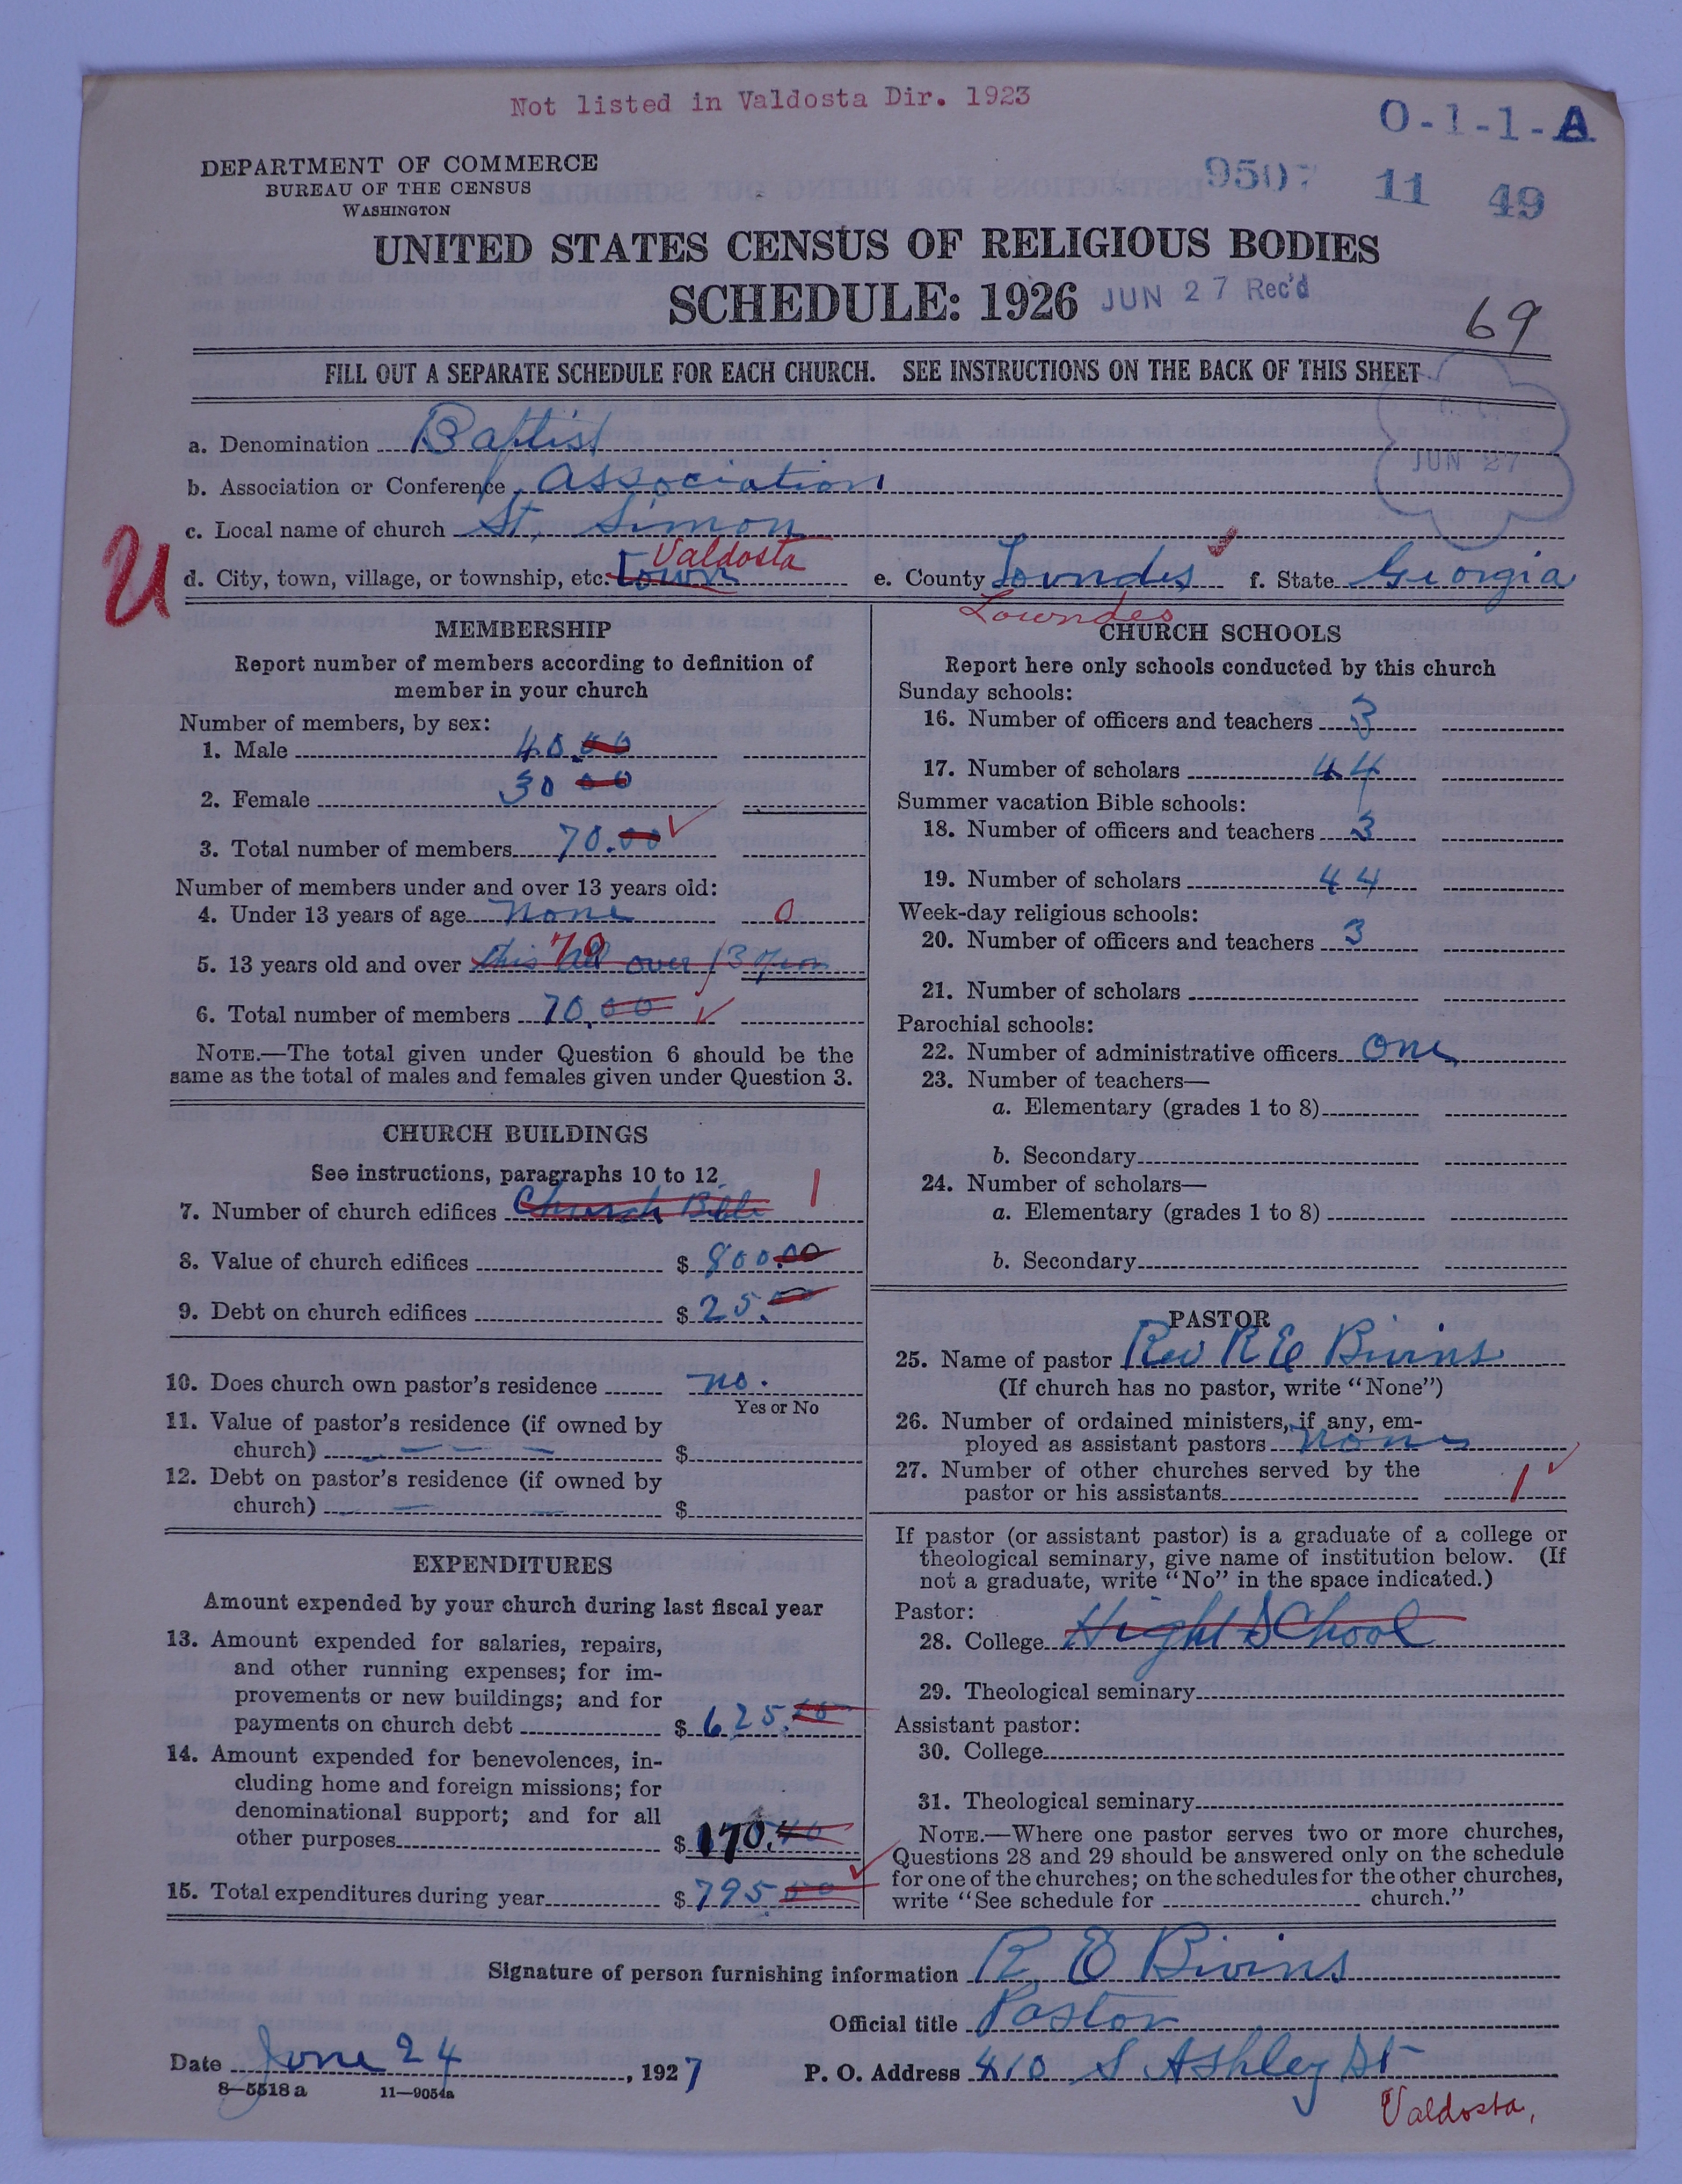 Not listed in Valdosta Dir. 1923
O-1-1-A
DEPARTMENT OF COMMERCE
BUREAU OF THE CENSUS
WASHINGTON
9507 11 49
UNITED STATES CENSUS OF RELIGIOUS BODIES
SCHEDULE: 1926 JUN 27 Rec'd
69
FILL OUT A SEPARATE SCHEDULE FOR EACH CHURCH. SEE INSTRUCTIONS ON THE BACK OF THIS SHEET
a. Denomination Baptist
JUN 27
b. Association or Conference Association
c. Local name of church St. Simon
U
Valdosta
d. City, town, village, or township, etc. Town e. County Lowndes f. State Georgia
Lowndes
MEMBERSHIP
Report number of members according to definition of
member in your church
Number of members, by sex:
1. Male 40.00
2. Female 30 00
3. Total number of members 70.00
Number of members under and over 13 years old:
4. Under 13 years of age None 0
5. 13 years old and over this all over 13 70
6. Total number of members 70.00
NOTE.—The total given under Question 6 should be the
same as the total of males and females given under Question 3.
CHURCH BUILDINGS
See instructions, paragraphs 10 to 12
7. Number of church edifices Church Bible 1
8. Value of church edifices $ 800.00
9. Debt on church edifices $ 25.00
10. Does church own pastor's residence no.
Yes or No
11. Value of pastor's residence (if owned by
church) — — — $
12. Debt on pastor's residence (if owned by
church) — — $
EXPENDITURES
Amount expended by your church during last fiscal year
13. Amount expended for salaries, repairs,
and other running expenses; for im-
provements or new buildings; and for
payments on church debt $ 625.
14. Amount expended for benevolences, in-
cluding home and foreign missions; for
denominational support; and for all
other purposes $ 170.
15. Total expenditures during year $ 795.00
CHURCH SCHOOLS
Report here only schools conducted by this church
Sunday schools:
16. Number of officers and teachers 3
17. Number of scholars 44
Summer vacation Bible schools:
18. Number of officers and teachers 3
19. Number of scholars 44
Week-day religious schools:
20. Number of officers and teachers 3
21. Number of scholars
Parochial schools:
22. Number of administrative officers One
23. Number of teachers—
a. Elementary (grades 1 to 8)
b. Secondary
24. Number of scholars—
a. Elementary (grades 1 to 8)
b. Secondary
PASTOR
25. Name of pastor Rev R E Bivins
(If church has no pastor, write "None")
26. Number of ordained ministers, if any, em-
ployed as assistant pastors None
27. Number of other churches served by the
pastor or his assistants 1
If pastor (or assistant pastor) is a graduate of a college or
theological seminary, give name of institution below. (If
not a graduate, write "No" in the space indicated.)
Pastor:
28. College High School
29. Theological seminary
Assistant pastor:
30. College
31. Theological seminary
NOTE.—Where one pastor serves two or more churches,
Questions 28 and 29 should be answered only on the schedule
for one of the churches; on the schedules for the other churches,
write "See schedule for church."
Signature of person furnishing information R. E Bivins
Official title Pastor
Date June 24, 1927 P. O. Address 410 S Ashley St
8—5518 a 11—9054a
Valdosta,